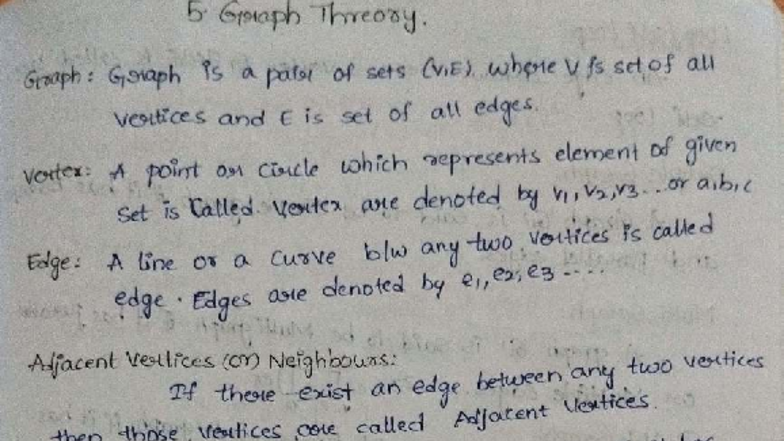 5. Graph Threory.
Graph: Graph is a pair of sets (V,E) where V is set of all
vertices and E is set of all edges.
Vertex: A point or circle which represents element of given
set is Called vertex are denoted by v1, v2, v3... or a,b,c
Edge: A line or a curve b/w any two vertices is called
edge. Edges are denoted by e1, e2, e3 ....
Adjacent Vertices (or) Neighbours:
If there exist an edge between any two vertices
then those vertices are called Adjacent Vertices.